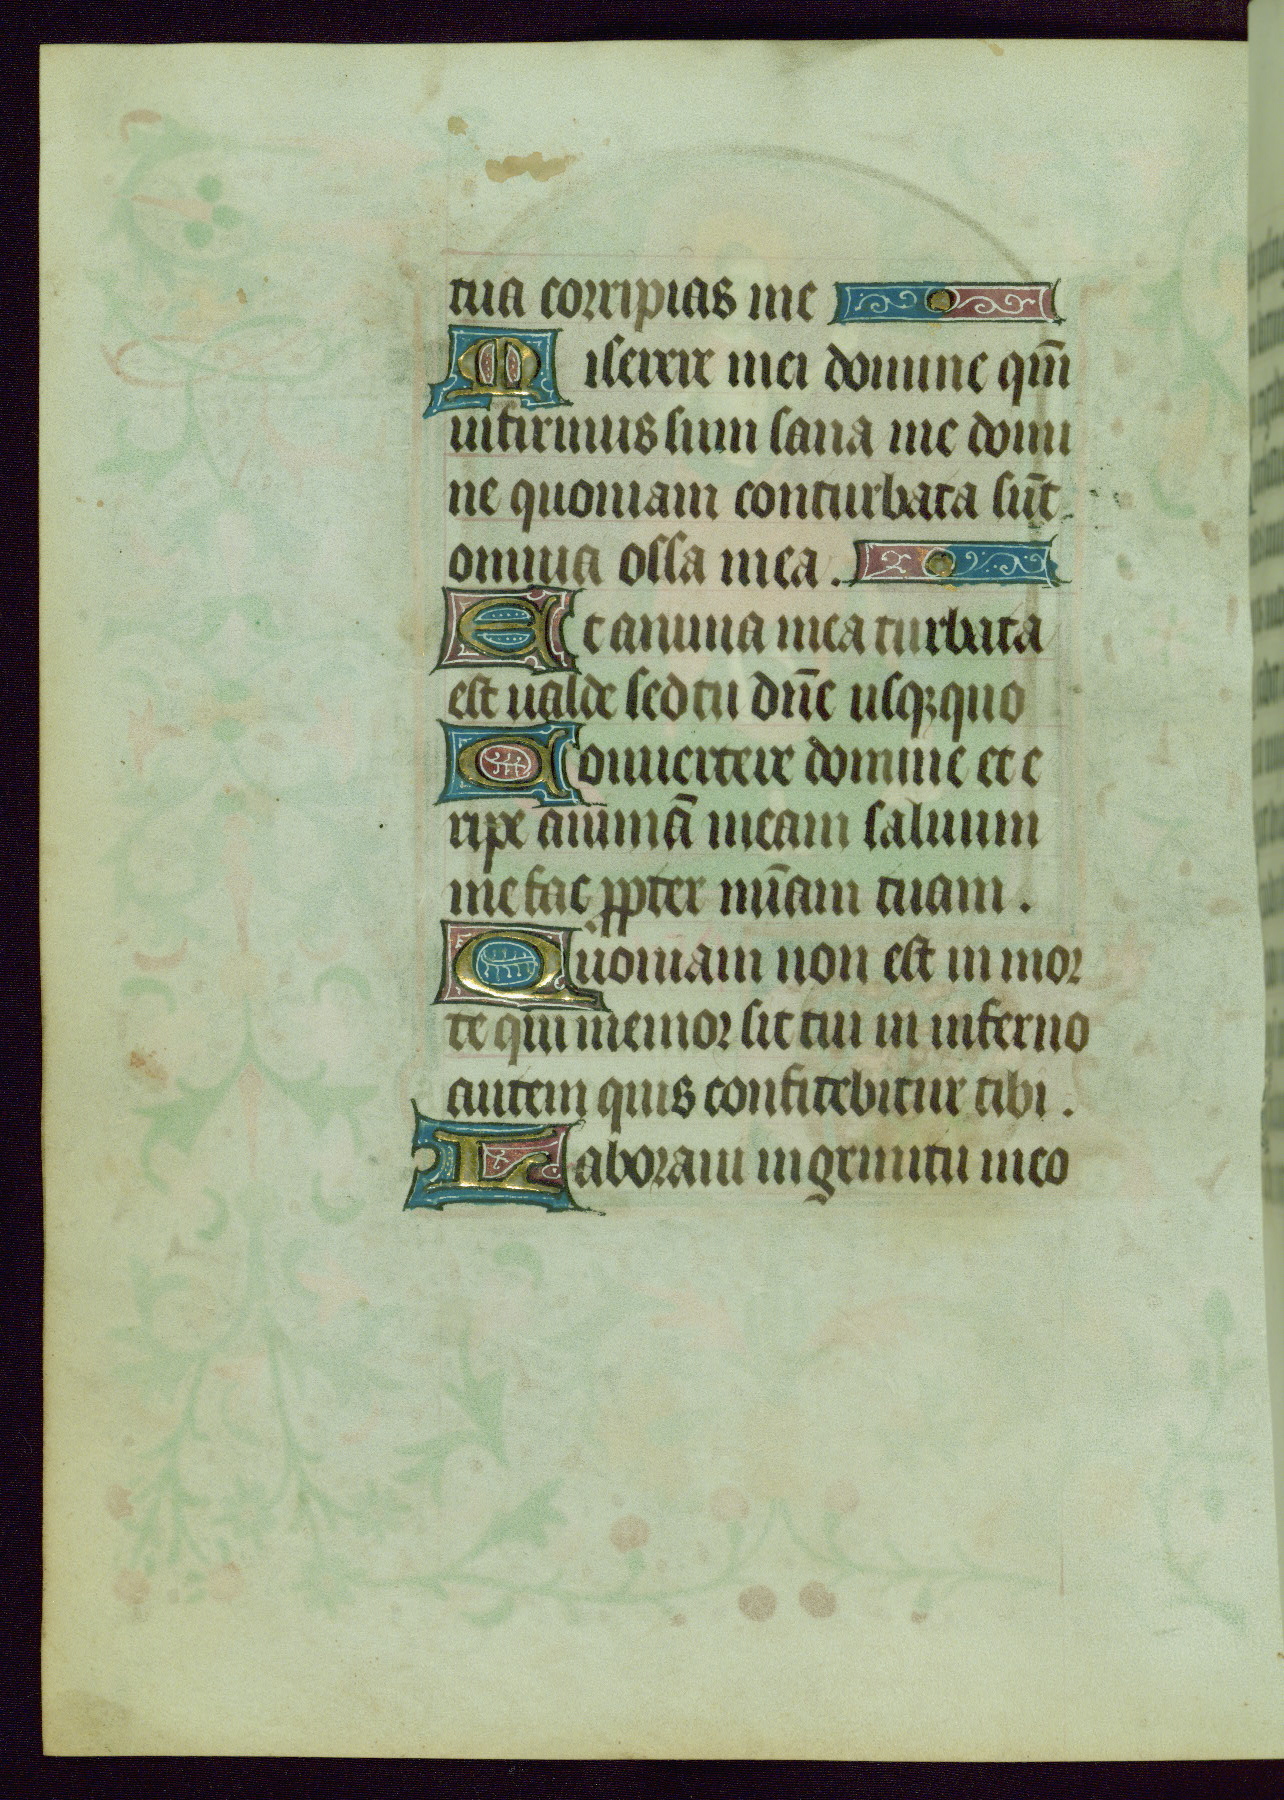 tua corripias me
Miserere mei domine qm̄
infirmus sum sana me domi
ne quoniam conturbata sūt
omnia ossa mea.
Et anima mea turbata
est ualde sed tu dn̄e usqꝫquo
Conuertere domine et e
ripe animā meam saluum
me fac ꝓpter mīam tuam.
Quoniam non est in mor
te qui memor sit tui in inferno
autem quis confitebitur tibi.
Laboraui in gemitu meo